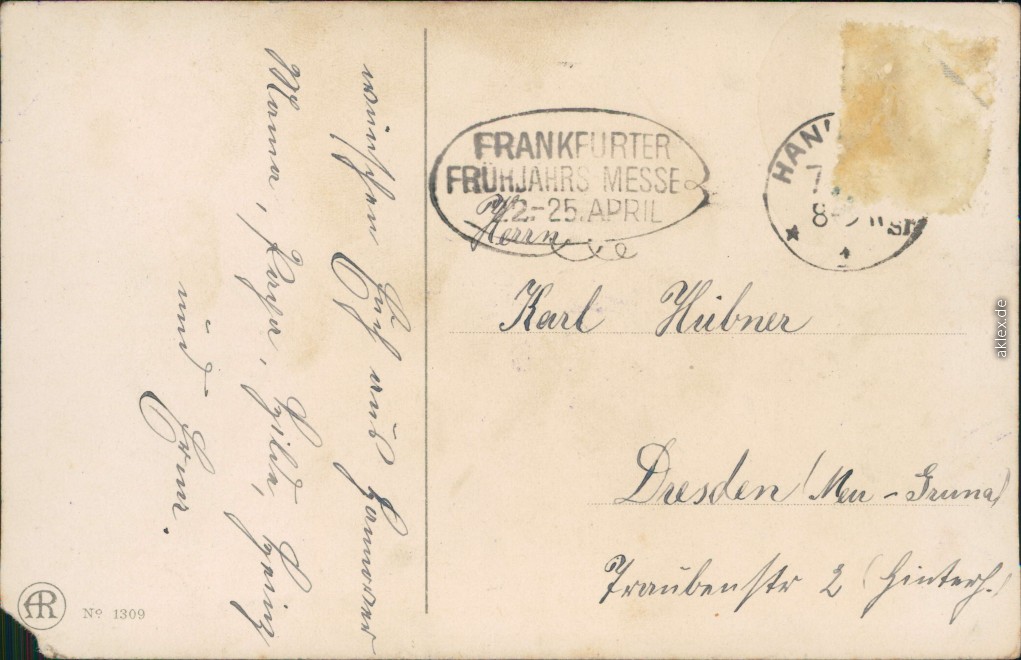 wünschen Euch aus Hannover
Mama, Papa, Hilda, Heinz
und Erna.
FRANKFURTER
FRÜHJAHRS MESSE
22.-25. APRIL
HAN
7
8-9
Herrn
Karl Hübner
Dresden (Neu-Gruna)
Traubenstr 2 (Hinterh.)
AR
No 1309
aklex.de